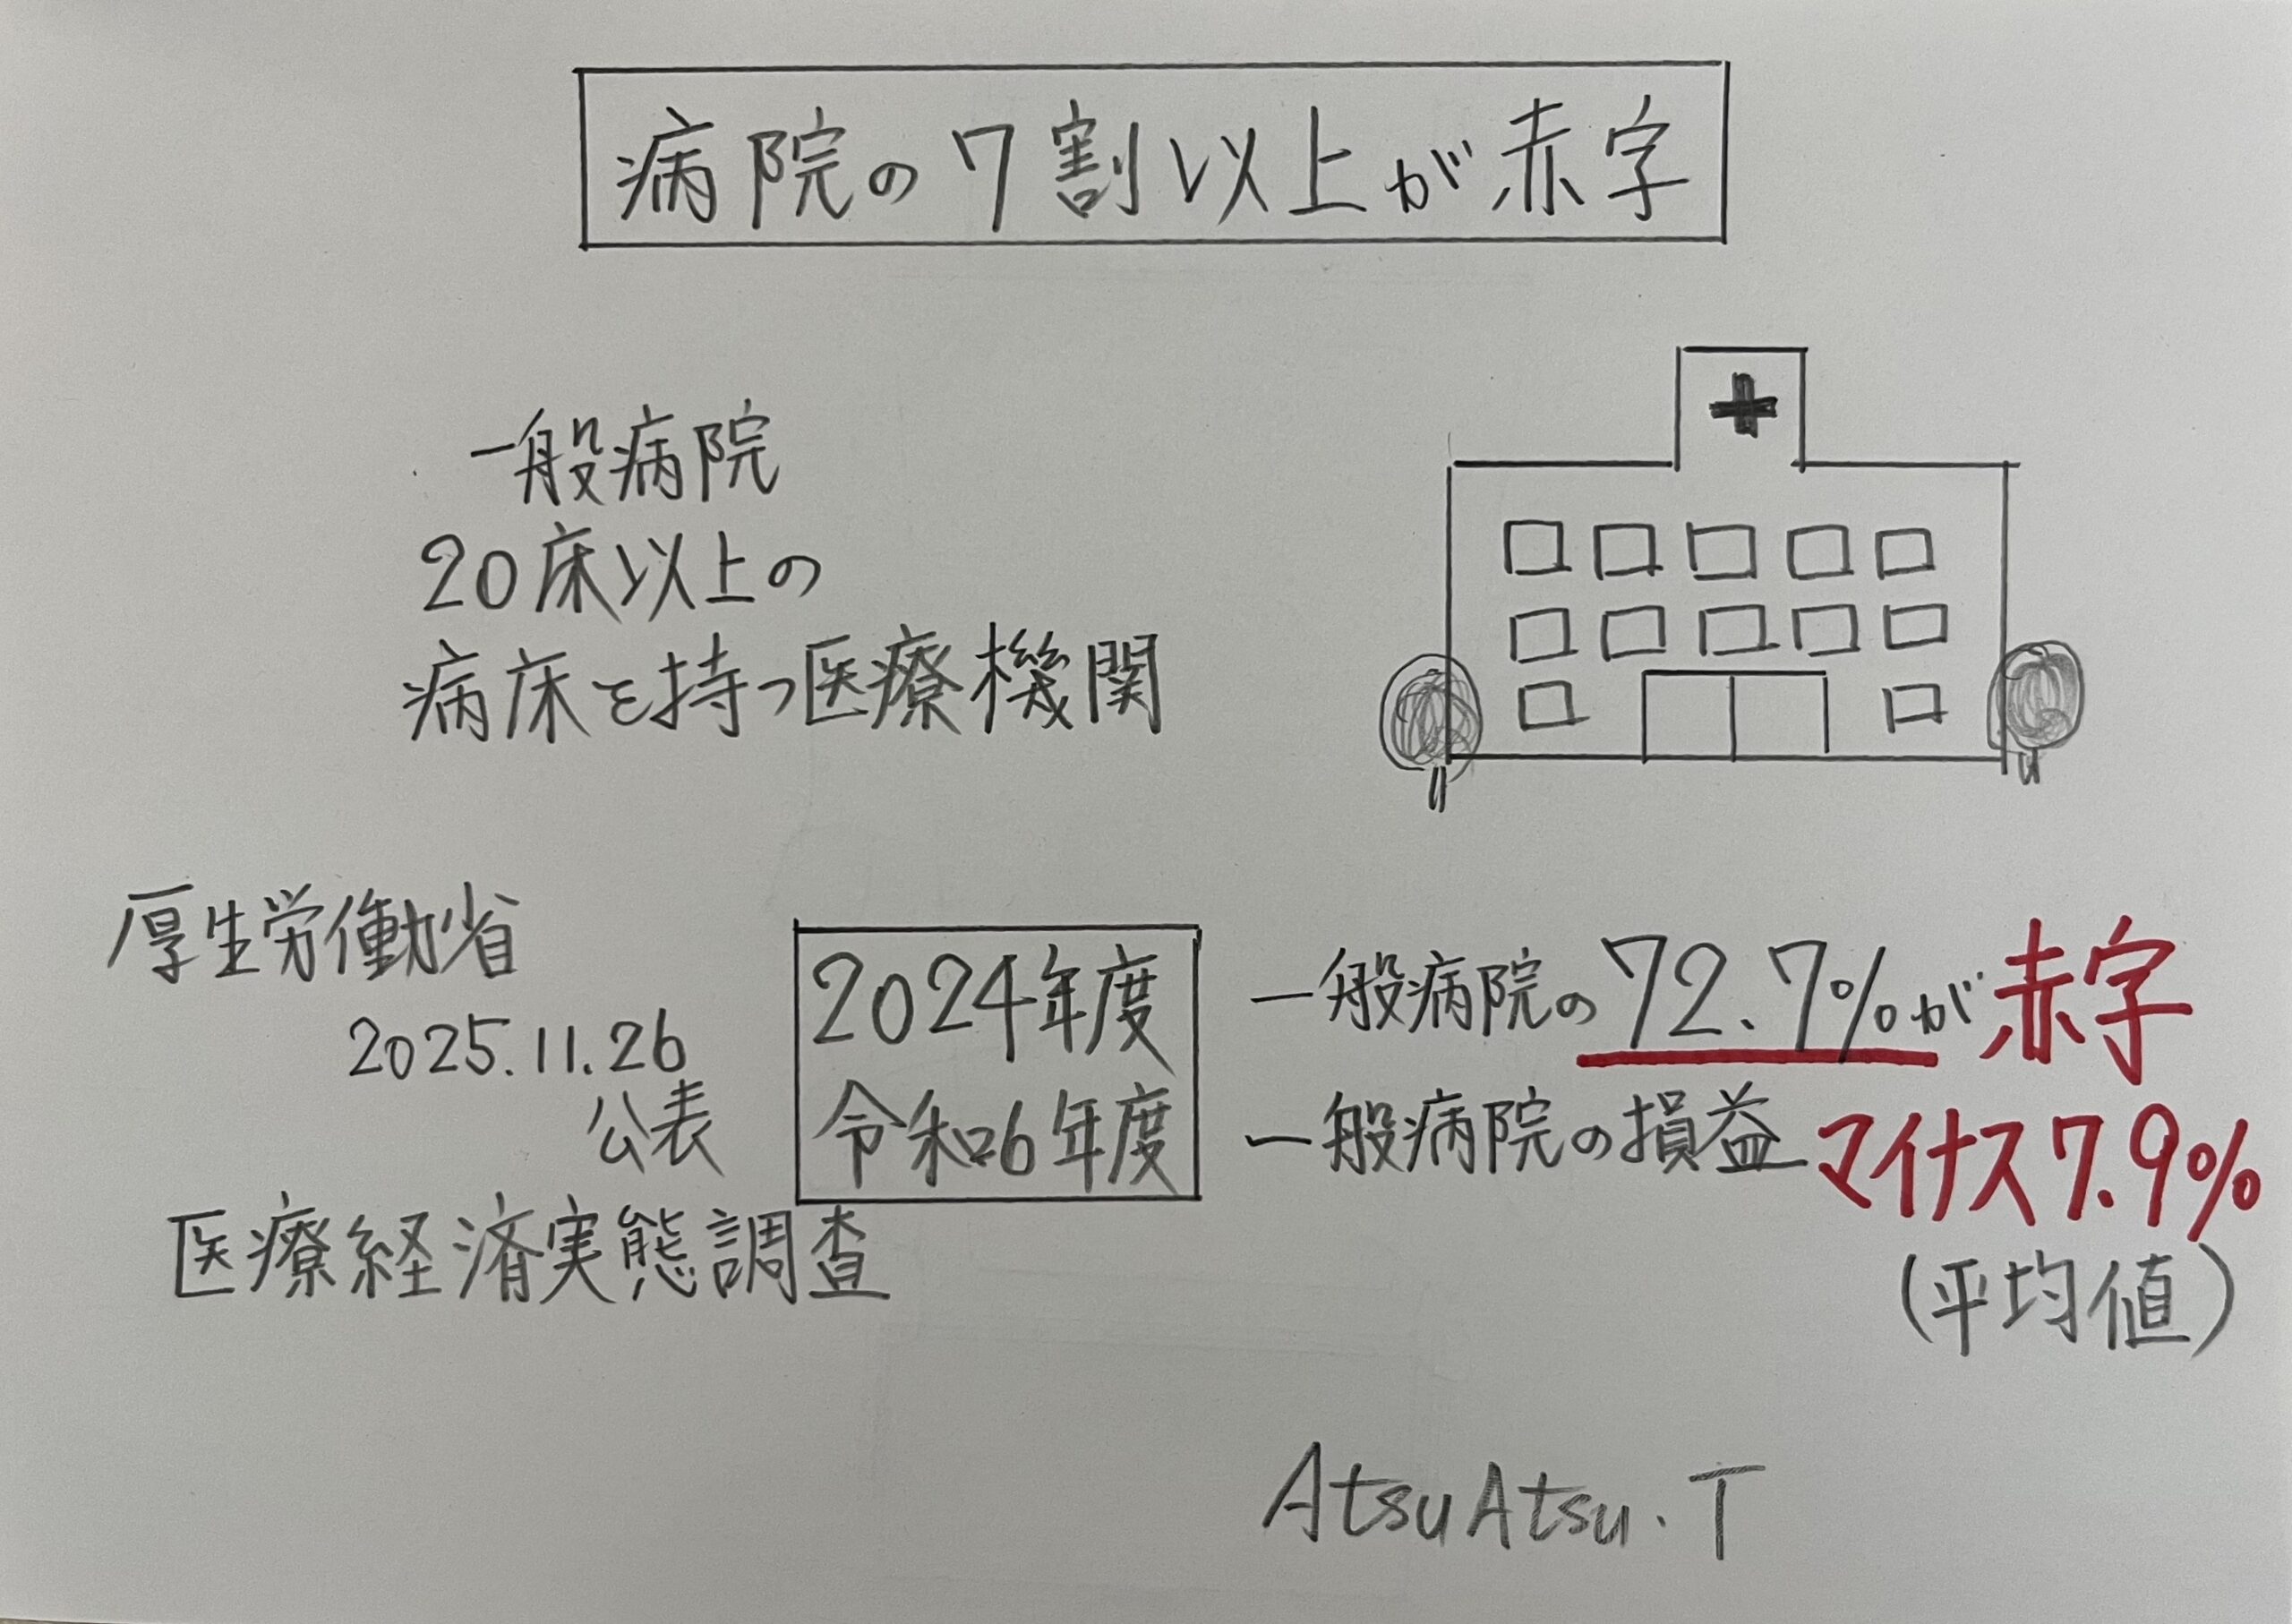 病院の7割以上が赤字
一般病院
20床以上の
病床を持つ医療機関
厚生労働省
2025.11.26
公表
医療経済実態調査
2024年度
令和6年度
一般病院の72.7%が赤字
一般病院の損益マイナス7.9%
(平均値)
AtsuAtsu.T